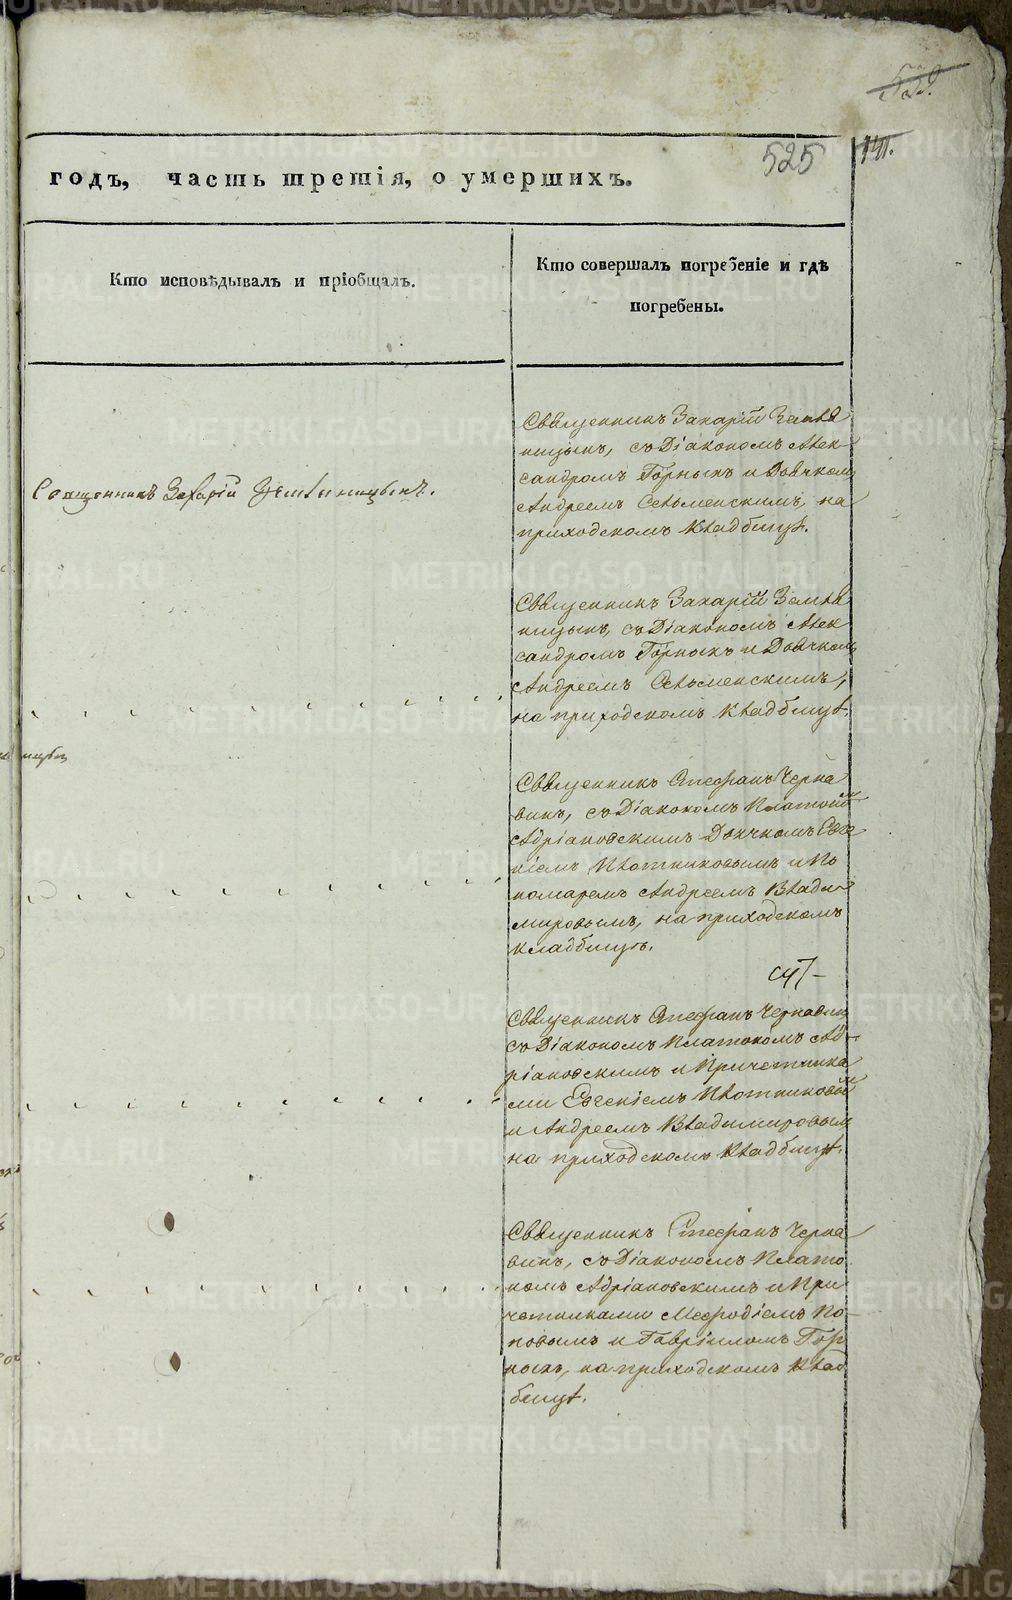 529.
525
141.
годъ, часть третія, о умершихъ.
Кто исповѣдывалъ и пріобщалъ.
Кто совершалъ погребеніе и гдѣ
погребены.
Священникъ Захарій Земля
ницынъ, съ Діакономъ Алек
сандромъ Горныхъ и Дьячкомъ
Андреемъ Сельменскимъ, на
приходскомъ кладбищѣ.
Священникъ Захарій Земляницынъ.
Священникъ Захарій Земля
ницынъ, съ Діакономъ Алек
сандромъ Горныхъ и Дьячкомъ
Андреемъ Сельменскимъ,
на приходскомъ кладбищѣ.
Священникъ Стефанъ Черна
винъ, съ Діакономъ Платоном
Адріановскимъ Дьячкомъ Евге
ніемъ Плотниковымъ и По
номаремъ Андреемъ Влади
мировымъ, на приходскомъ
кладбищѣ.
Священникъ Стефанъ Чернавинъ
съ Діакономъ Платономъ Ад-
ріановскимъ и Причетника
ми Евгеніемъ Плотниковым
и Андреемъ Владимировым
на приходскомъ кладбищѣ.
Священникъ Стефанъ Черна
винъ, съ Діакономъ Плато
номъ Адріановскимъ и При
четниками Меѳодіемъ По-
повымъ и Гавріиломъ Гор
ныхъ, на приходскомъ клад
бищѣ.
METRIKI.GASO-URAL.RU